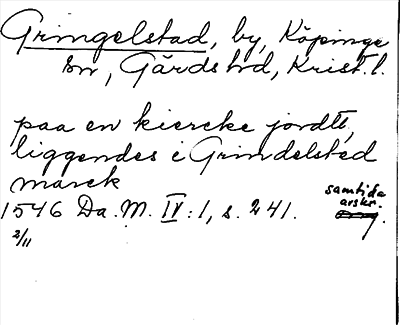 Gringelstad, by, Köpinge
sn, Gärds hd, Krist. l.
paa en kiercke jordt,
liggendes i Grindelsted
marck
1546 Da. M. IV:1, s. 241.
samtida
avskr.
2/11